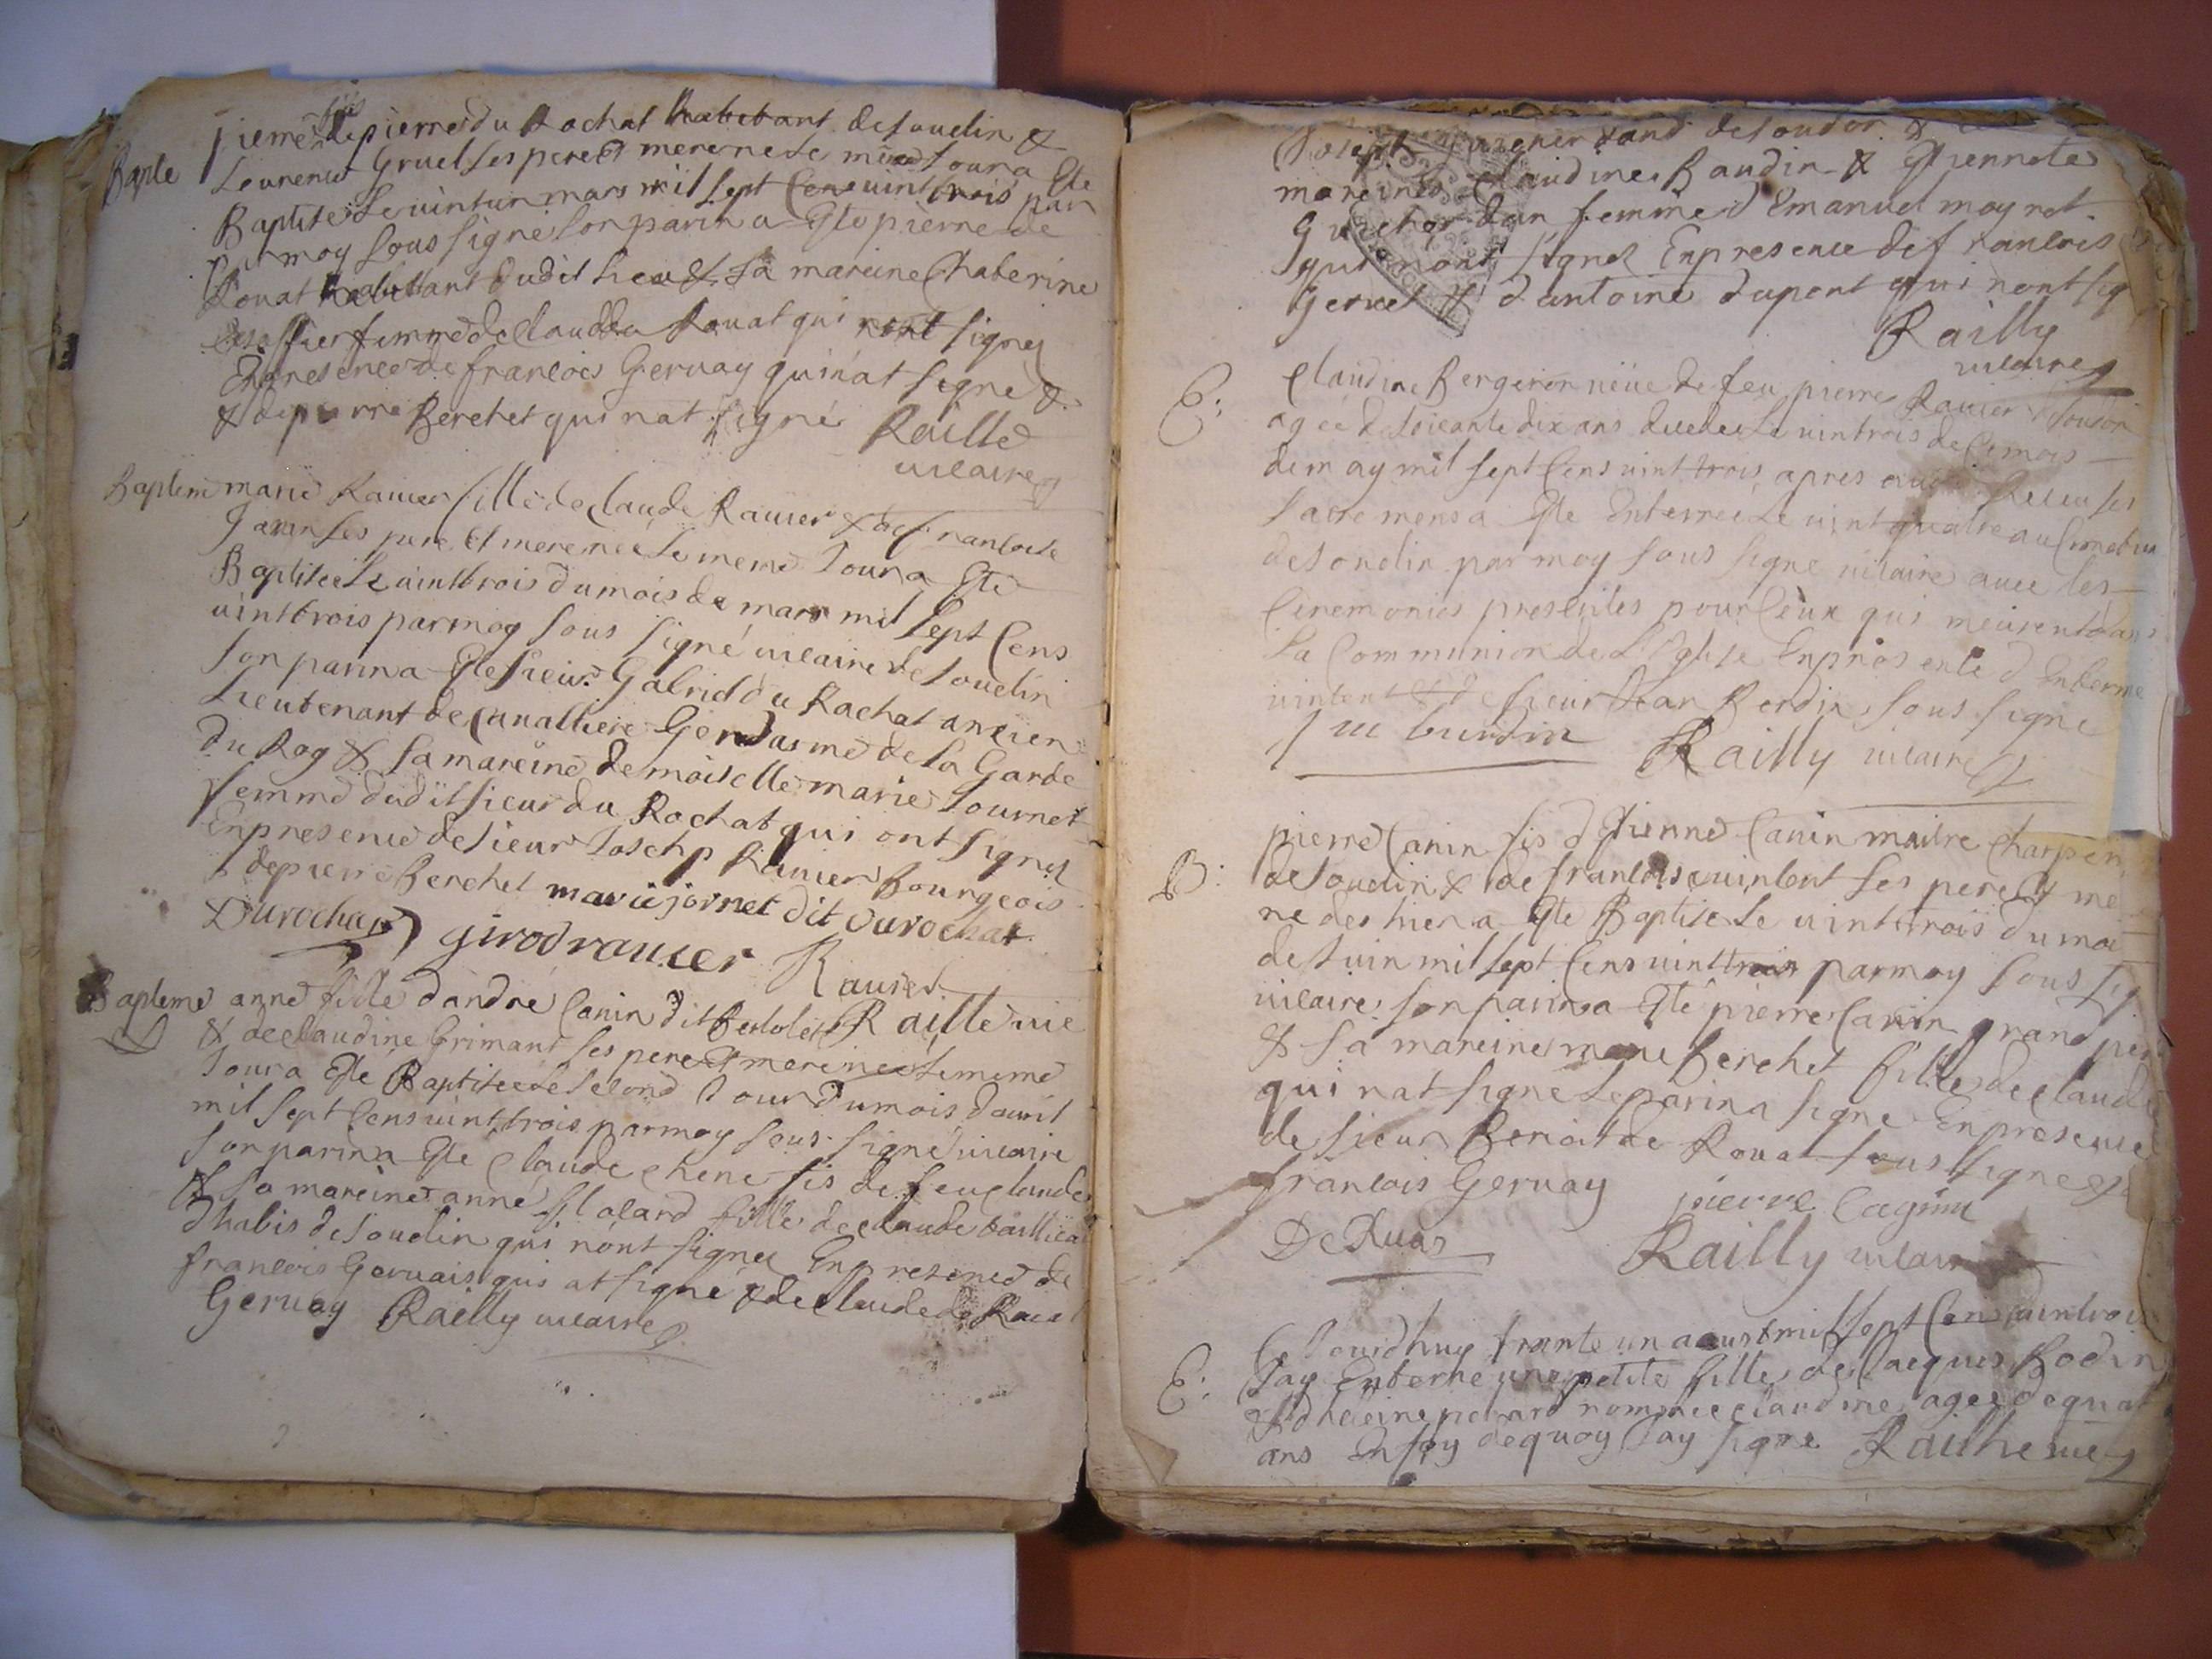 fils
pierre de pierre du Rochat habitant de Soudin &
Baple Laurence Gruel ses pere et mere ne le meme Jour a Ete
Baptise le vint un mars mil sept Cens vint trois par
moy sous signé son parin a Ete pierre de
Rouat habitant dudit lieu & sa mareine Chaterine
femme de Claude Rouat qui nont signes
En presence de francois Geruay qui nat signé &
& de pierre Berchet qui nat signé Raillé
uicaire
Baptem marie Rauier fille de Claude Rauier & de francoise
Janin ses pere et mere neé le meme Jour a Ete
Baptiseé le uint trois du mois de mars mil sept Cens
uint trois par moy sous signé uicaire de Soudin
son parin a Ete sieur Gabriel du Rochat ancien
Lieutenant de Cauallerie Gendarme de la Garde
du Roy & sa mareine demoiselle marie Journet
femme dudit sieur du Rochat qui ont signes
En presence de sieur Josehp Rauier Bourgeois
& de pierre Berchet marie jornet dit durochat
Durochat girod rauier Rauier
Bapteme anne fille dandre Canin dit Raillé uic
& de claudine Grimant ses pere et mere neé le meme
Jour a Eté Baptiseé le second Jour du mois dauril
mil sept Cens uint trois par moy sous signé uicaire
son parin a Eté Claude Chene fis de feu claude
& sa mareine anne fille de claude
dhabis de Soudin qui nont signes En presence de
francois Geruais qui at signé & de claude de Rouat
Geruay Railly uicaire
Joseph de Soudon &
mareines Claudine Baudin & Etiennete
Guichardan femme d Emanuel moyret
qui nont signes En presence de francois
Geruet & d antoine dupont qui nont sig
Railly
uicaire
E: Claudine Bergeron ueue de feu pierre Rauier Soudon
ageé de soicante dix ans decedeé le uint trois de Ce mois
de may mil sept Cens uint trois apres auoir receu ses
sacremens a Ete Enterreé le uint quatre au Cimetiere
de Soudin par moy sous signé uicaire auec les
Ceremonies prescrites pour Ceux qui meurent dans
la Communion de L Eglise En presence d
uincent & de sieur Jean Berdin sous signe
Railly uicaire
pierre Canin fis d Etienne Canin maitre Charpen
B: de Soudin & de francoise uincent ses pere & me
ne des hier a Ete Baptise le uint trois du moi
de Juin mil sept Cens uint trois par moy sous sig
uicaire son parin a Eté pierre Canin grand pere
& sa mareine marie Berchet fille de claude
qui nat signe le parin a signe En presence
de sieur Benoit de Rouat sous signe &
francois Geruay pierre Cagnin
De Ruat Railly uicaire
Ce Jourdhuy trante un aoust mil sept Cens uint trois
E: Jay Enterré une petite fille de Jacques Bodin
& d heleine nommeé claudine ageé de quat
ans En foy de quoy Jay signe Raillie uic